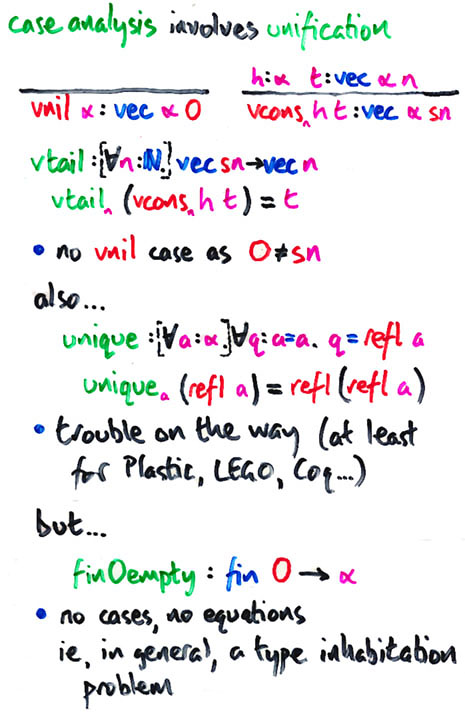 case analysis involves unification
h:α t:vec α n
vnil α : vec α 0 vconsₙ h t : vec α sn
vtail :[∀n:ℕ.] vec sn → vec n
vtailₙ (vconsₙ h t) = t
• no vnil case as 0≠sn
also...
unique :[∀a:α]∀q:a=a. q=refl a
uniqueₐ (refl a) = refl (refl a)
• trouble on the way (at least
for Plastic, LEGO, Coq...)
but...
fin0empty : fin 0 → α
• no cases, no equations
ie, in general, a type inhabitation
problem